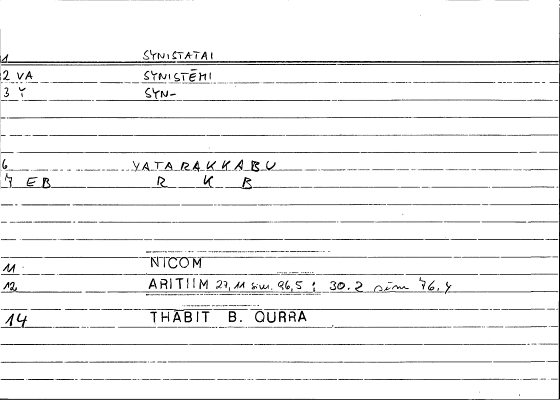 1 SYNISTATAI
2 VA SYNISTĒMI
3 Y SYN-
6 YATARAKKABU
7 EB R K B
11 NICOM
12 ARITIIM 27,11 sim. 96,5 ; 30.2 sim 76,4
14 THABIT B. QURRA